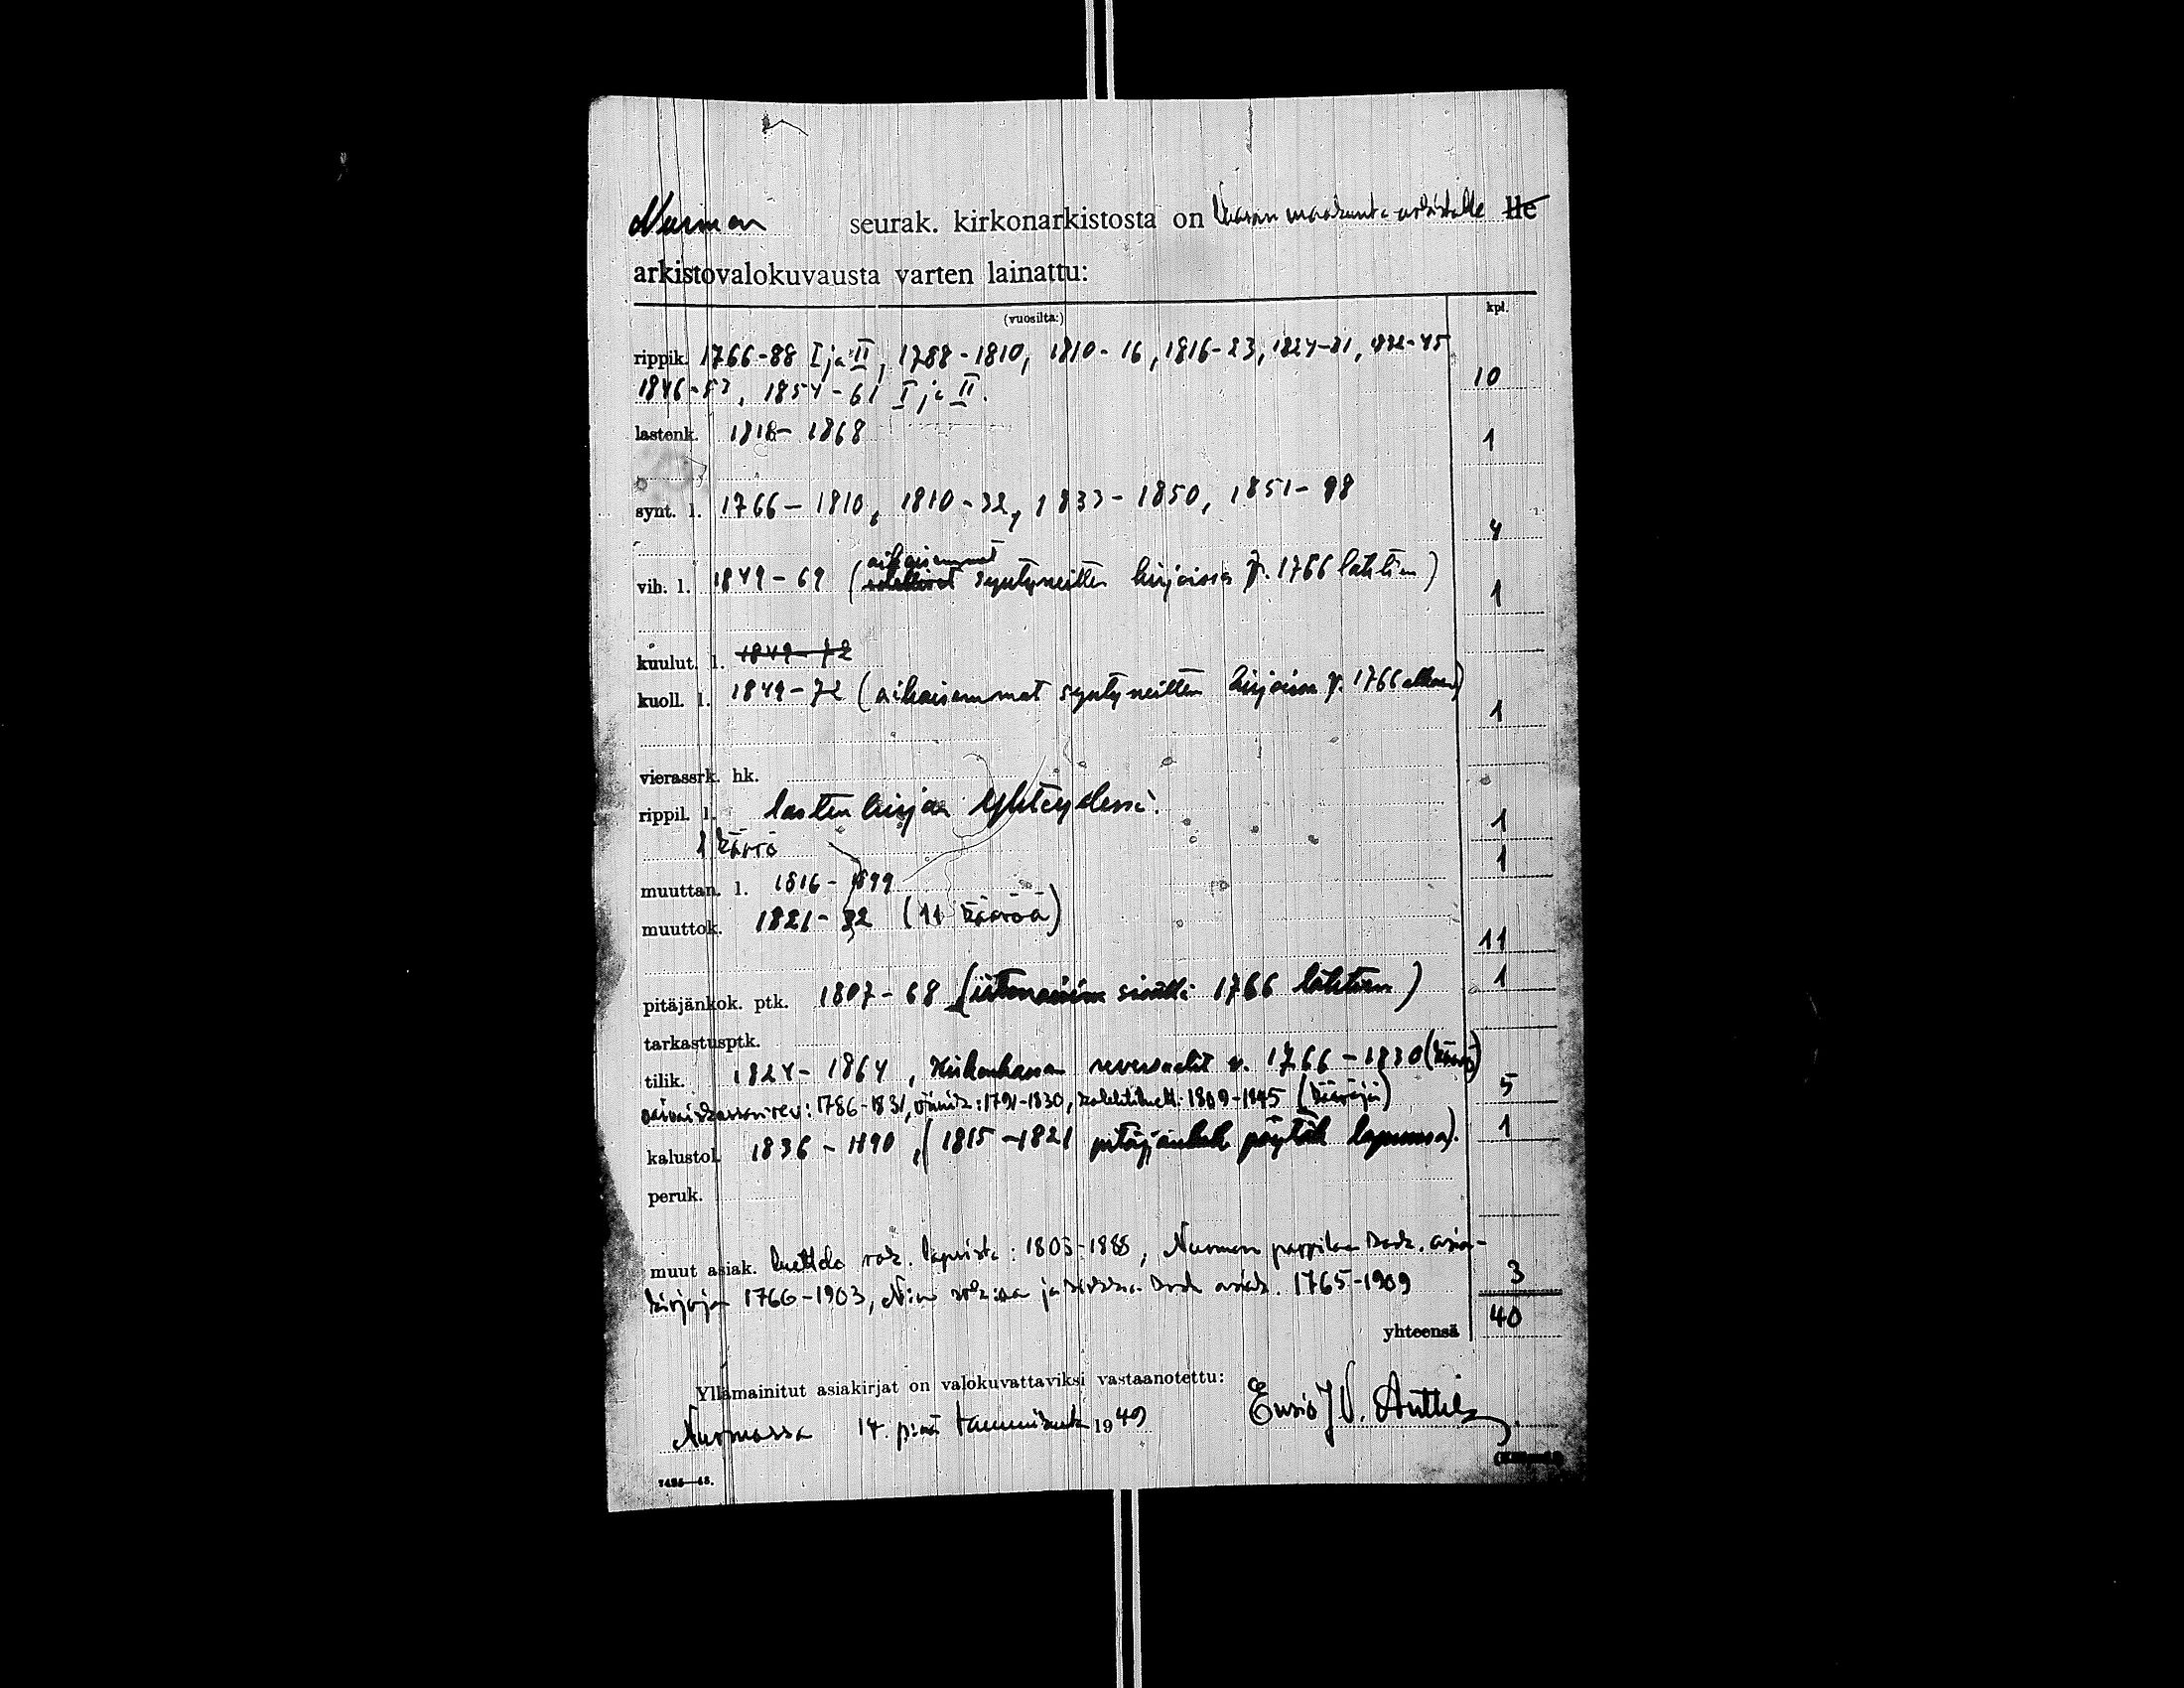 Nurmon seurak. kirkonarkistosta on Vaasan maakunta-arkistolle lle
arkistovalokuvausta varten lainattu:
(vuosilta:) kpl.
rippik. 1766-88 I ja II, 1788-1810, 1810-16, 1816-23, 1824-31, 1832-45
1846-53, 1854-61 I ja II. 10
lastenk. 1818-1868 1
synt. l. 1766-1810, 1810-32, 1833-1850, 1851-98 4
aikaisemmat
vih. l. 1849-69 ( syntyneitten kirjoissa v. 1766 lähtien) 1
kuulut. l. 1849-72
kuoll. l. 1849-72 (aikaisemmat syntyneitten kirjoissa v. 1766 alkaen) 1
vierassrk. hk.
rippil. l. lastenkirjan yhteydessä. 1
1 käärö 1
muuttan. l. 1816-1899
muuttok. 1821-32 (11 kääröä) 11
pitäjänkok. ptk. 1807-68 ( 1766 lähtien) 1
tarkastusptk.
tilik. 1824-1864, Kirkonkassan reversaalit v. 1766-1830 (käärö)
vaivaiskassan rev: 1786-1831, 1791-1830, 1809-1845 (kääröjä) 5
kalustol. 1836-1890, (1815-1821 pitäjänkok. pöytäk. lopussa). 1
peruk.
muut asiak. luettelo rok. lapsista: 1805-1888, Nurmon pappilan rak. asia-
kirjoja 1766-1903, ja kirkon rak. asiak. 1765-1909 3
yhteensä 40
Yllämainitut asiakirjat on valokuvattaviksi vastaanotettu:
Nurmossa 14. p:nä tammikuuta 1949 Ensio J V. Anttila
7425—48.